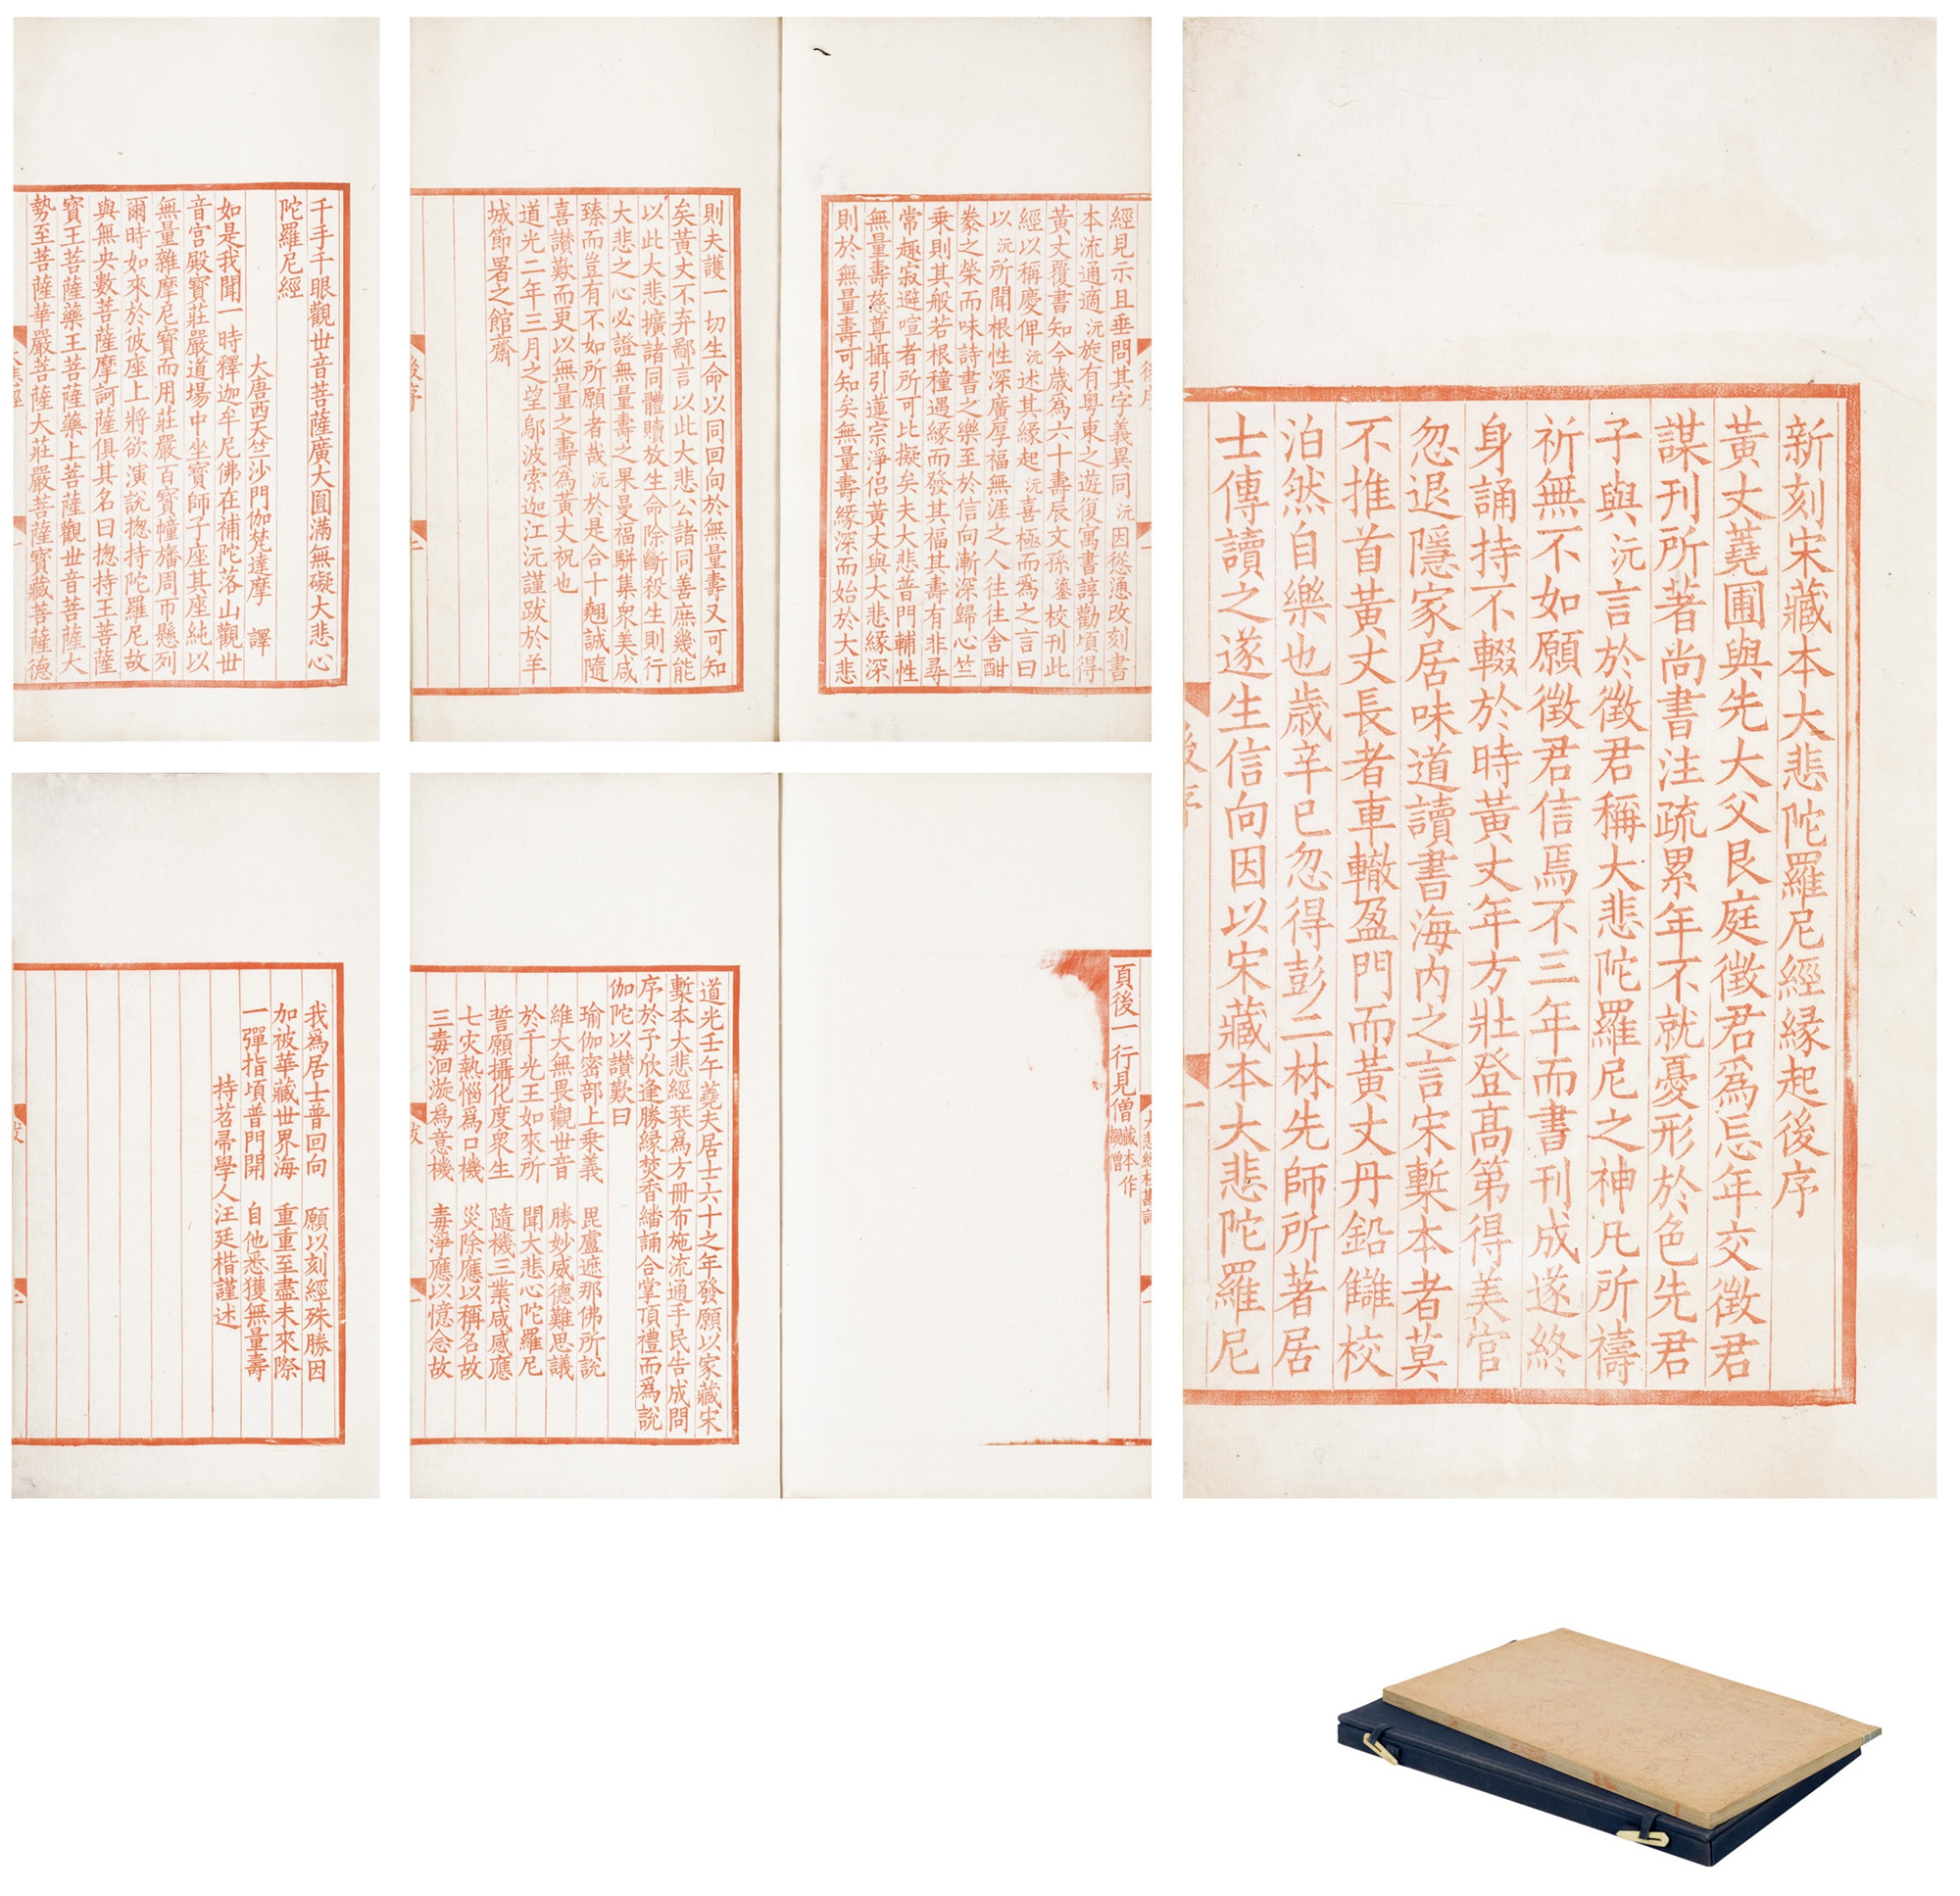 千手千眼觀世音菩薩廣大圓滿無礙大悲心
陀羅尼經
大唐西天竺沙門伽梵達摩 譯
如是我聞一時釋迦牟尼佛在補陀落山觀世
音宮殿寶莊嚴道場中坐寶師子座其座純以
無量雜摩尼寶而用莊嚴百寶幢旛周帀懸列
爾時如來於彼座上將欲演說捴持陀羅尼故
與無央數菩薩摩訶薩俱其名曰捴持王菩薩
寶王菩薩藥王菩薩藥上菩薩觀世音菩薩大
勢至菩薩華嚴菩薩大莊嚴菩薩寶藏菩薩德
經見示且垂問其字義異同沅因慫慂改刻書
本流通適沅旋有粵東之遊復寓書諄勸頃得
黃丈覆書知今歲為六十壽辰文孫鎏校刊此
經以稱慶俾沅述其緣起沅喜極而為之言曰
以沅所聞根性深廣厚福無涯之人往往舍酣
豢之榮而味詩書之樂至於信向漸深歸心竺
乗則其般若根種遇緣而發其福其壽有非尋
常趣寂避喧者所可比擬矣夫大悲普門輔性
無量壽慈尊攝引蓮宗淨侶黃丈與大悲緣深
則於無量壽可知矣無量壽緣深而始於大悲
後序
則夫護一切生命以同回向於無量壽又可知
矣黃丈不弃鄙言以此大悲公諸同善庶幾能
以此大悲擴諸同體贖放生命除斷殺生則行
大悲之心必證無量壽之果曼福駢集衆美咸
臻而豈有不如所願者哉沅於是合十翹誠隨
喜讃歎而更以無量之壽為黃丈祝也
道光二年三月之望鄔波索迦江沅謹跋於羊
城節署之館齋
新刻宋藏本大悲陀羅尼經緣起後序
黃丈蕘圃與先大父艮庭徵君爲忘年交徵君
謀刊所著尚書注疏累年不就憂形於色先君
子與沅言於徵君稱大悲陀羅尼之神凡所禱
祈無不如願徵君信焉不三年而書刊成遂終
身誦持不輟於時黃丈年方壯登高第得美官
忽退隱家居味道讀書海内之言宋槧本者莫
不推首黃丈長者車轍盈門而黃丈丹鉛讎校
泊然自樂也歳辛巳忽得彭二林先師所著居
士傳讀之遂生信向因以宋藏本大悲陀羅尼
我爲居士普回向 願以刻經殊勝因
加被華藏世界海 重重至盡未來際
一彈指頃普門開 自他悉獲無量壽
持苕帚學人汪廷楷謹述
頁後一行見僧藏本作
道光壬午蕘夫居士六十之年發願以家藏宋
槧本大悲經栞為方冊布施流通手民告成問
序於予欣逢勝緣焚香繙誦合掌頂禮而爲說
伽陀以讃歎曰
瑜伽密部上乗義 毘盧遮那佛所說
維大無畏觀世音 勝妙威德難思議
於千光王如來所 聞大悲心陀羅尼
誓願攝化度衆生 隨機三業咸感應
七灾熱惱爲口機 災除應以稱名故
三毒洄漩爲意機 毒淨應以憶念故